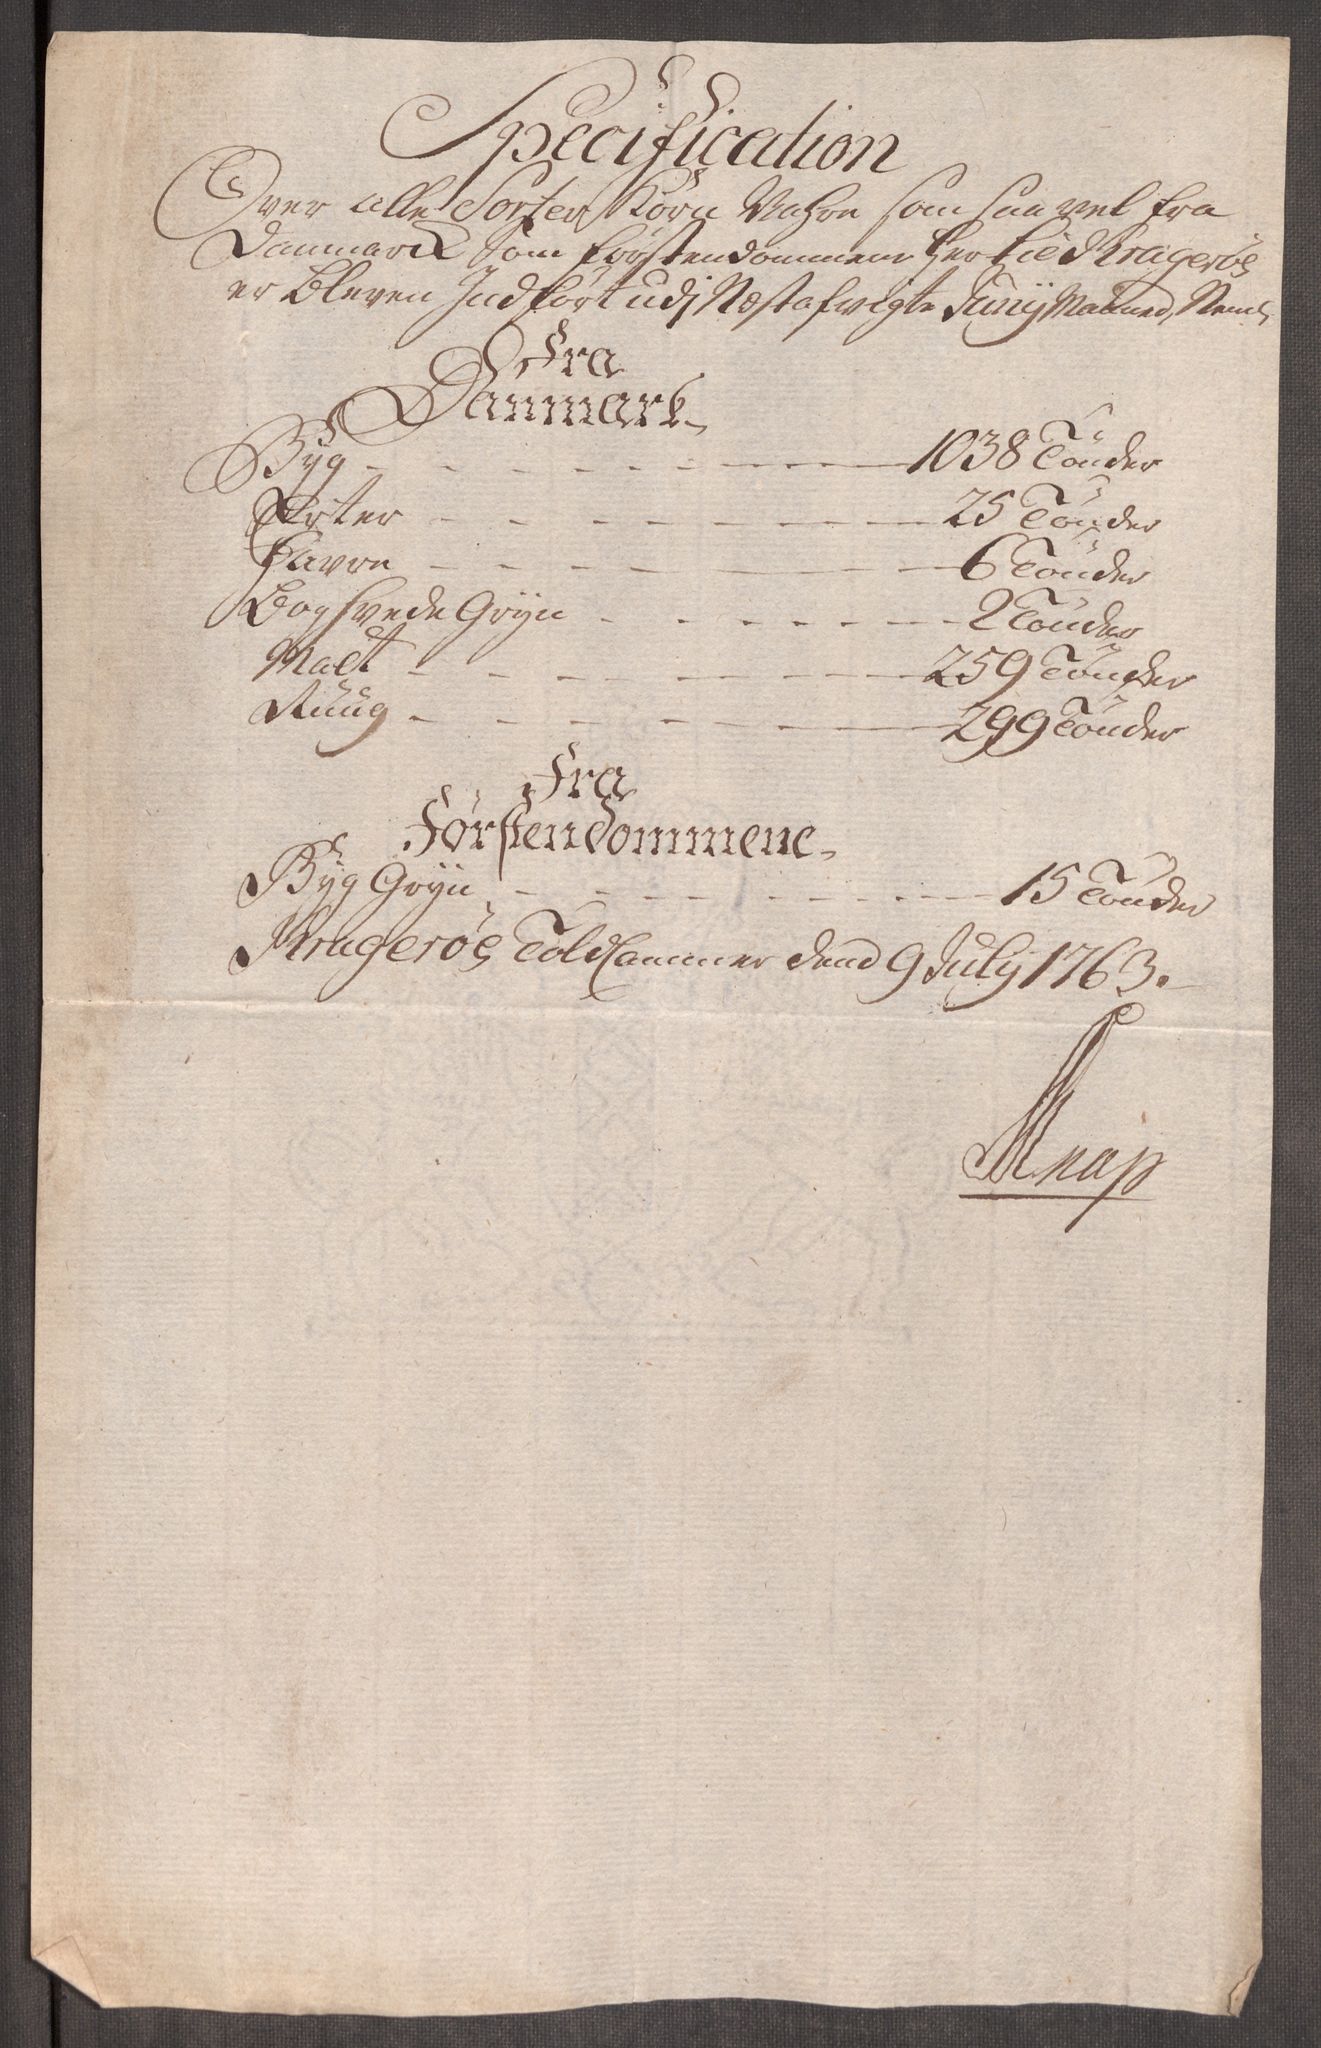 Specification
Over alle Sorter Korn Vahre som saa vel fra
Danmarck som Førstendommene her til Kragerøe
er bleven Indført udj Næstafvigte Junij Maaned, Neml
Fra
Danmark
Byg 1038 Tönder
Erter 25 Tönder
Havre 6 Tönder
Boghvede Gryn 2 Tönder
Malt 259 Tönder
Ruug 299 Tönder
Fra
Førstendommene
Byg Gryn 15 Tönder
Kragerøe Told Cammer dend 9 July 1763.
Knap